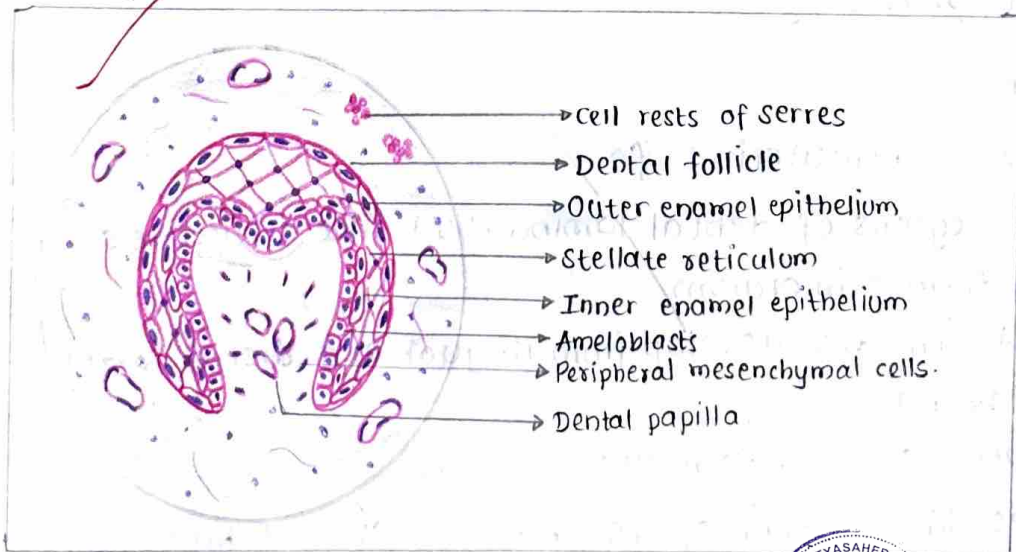 Cell rests of serres
Dental follicle
Outer enamel epithelium
Stellate reticulum
Inner enamel epithelium
Ameloblasts
Peripheral mesenchymal cells.
Dental papilla